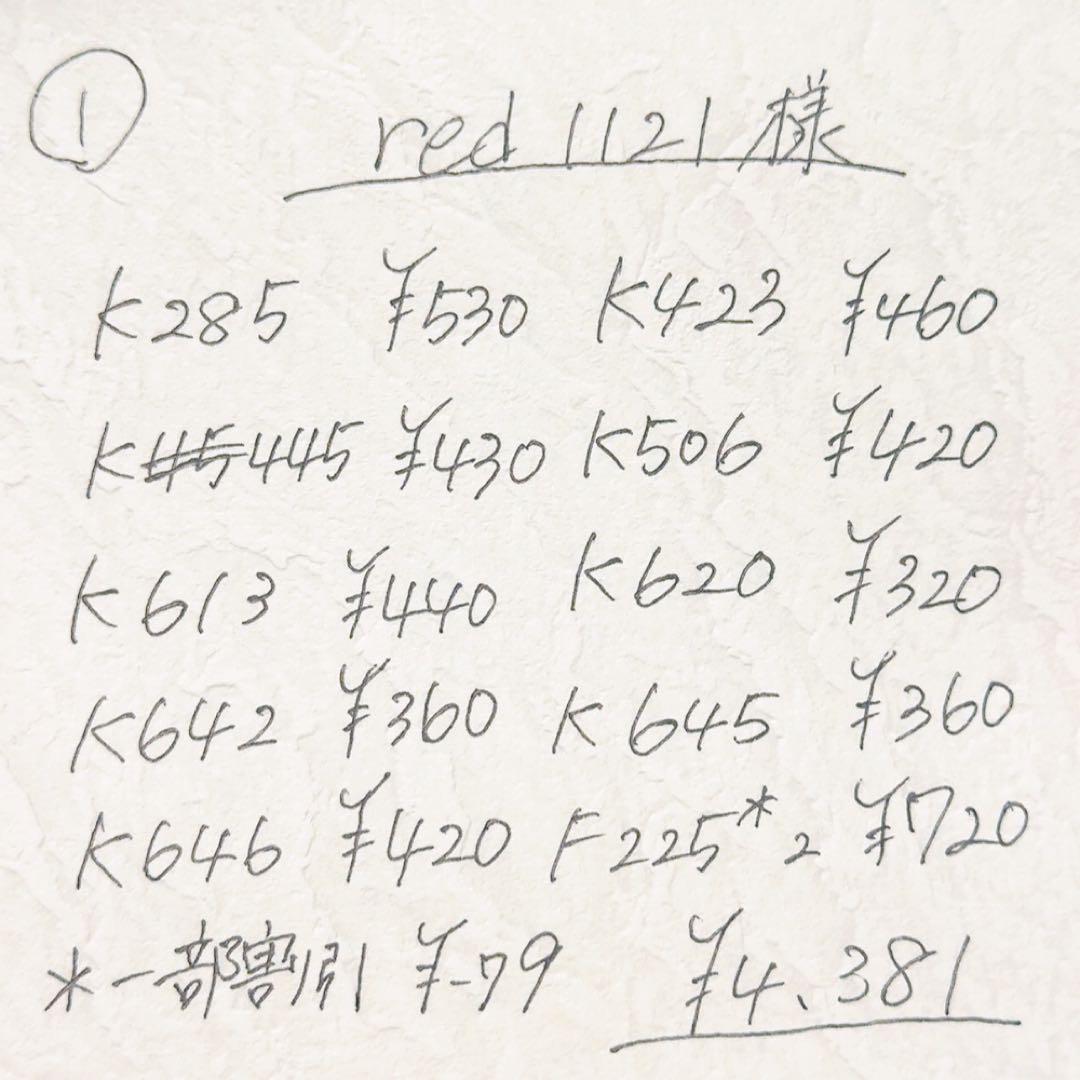 ① red 1121様
K285 ¥530 K423 ¥460
K445 ¥430 K506 ¥420
K613 ¥440 K620 ¥320
K642 ¥360 K645 ¥360
K646 ¥420 F225*2 ¥720
*一部割引 ¥-79 ¥4、381